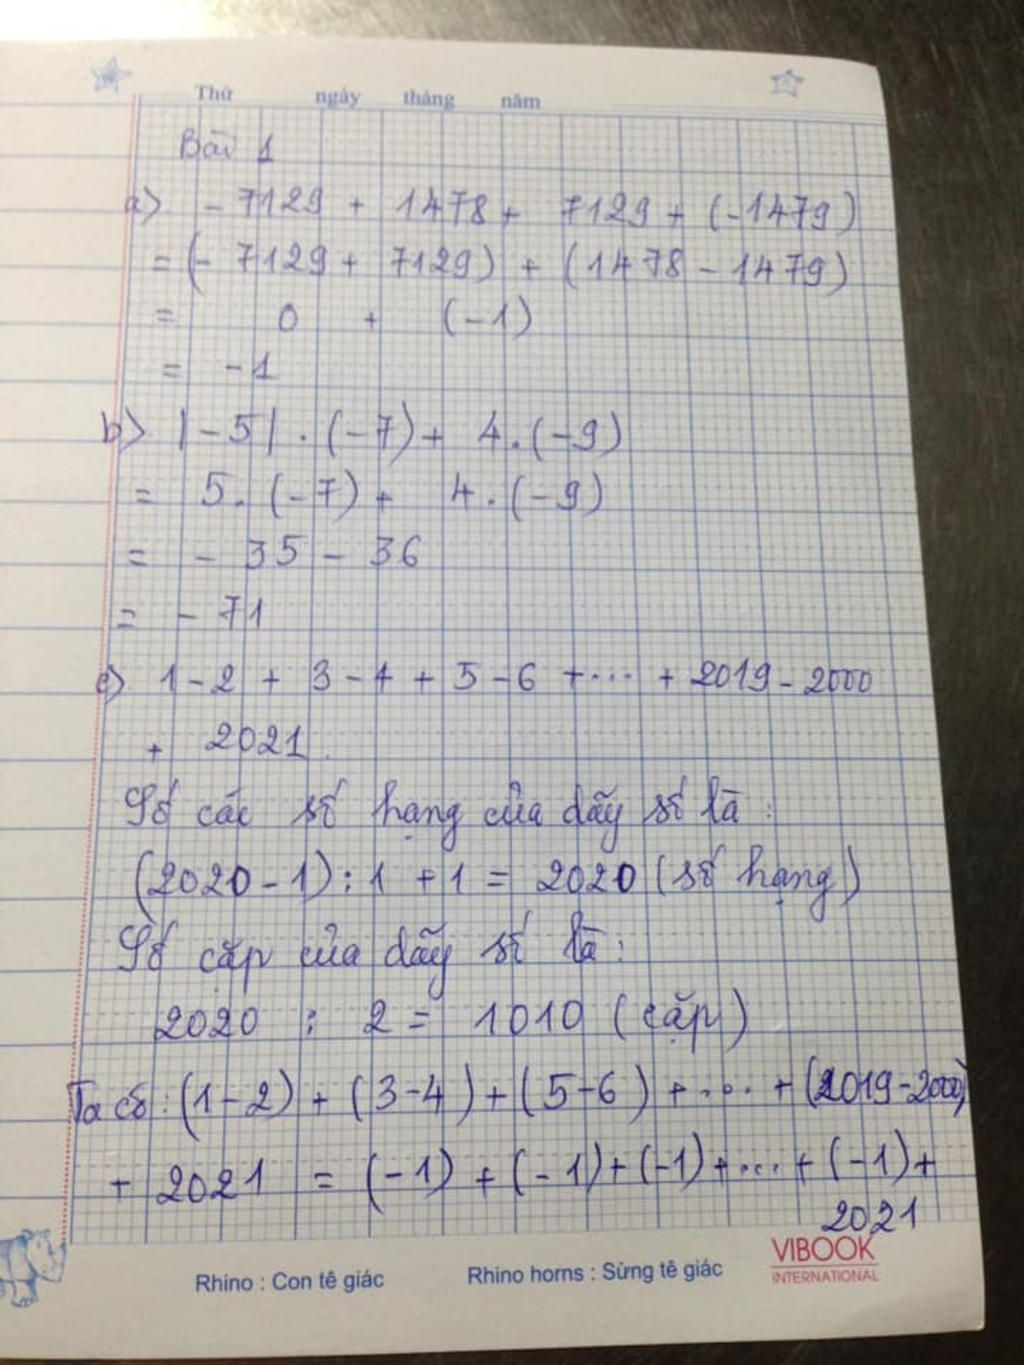 Thứ ngày tháng năm
Bài 1
a) - 7129 + 1478 + 7129 + (-1479)
= (- 7129 + 7129) + (1478 - 1479)
= 0 + (-1)
= -1
b) |-5| . (-7) + 4 . (-9)
= 5. (-7) + 4 . (-9)
= - 35 - 36
= - 71
c) 1 - 2 + 3 - 4 + 5 - 6 + .... + 2019 - 2000
+ 2021.
Số các số hạng của dãy số là :
(2020 - 1) : 1 + 1 = 2020 (số hạng)
Số cặp của dãy số là :
2020 : 2 = 1010 (cặp)
Ta có : (1 - 2) + (3 - 4) + (5 - 6) + .... + (2019 - 2000)
+ 2021 = (-1) + (-1) + (-1) + .... + (-1) +
2021
Rhino : Con tê giác Rhino horns : Sừng tê giác
VIBOOK
INTERNATIONAL